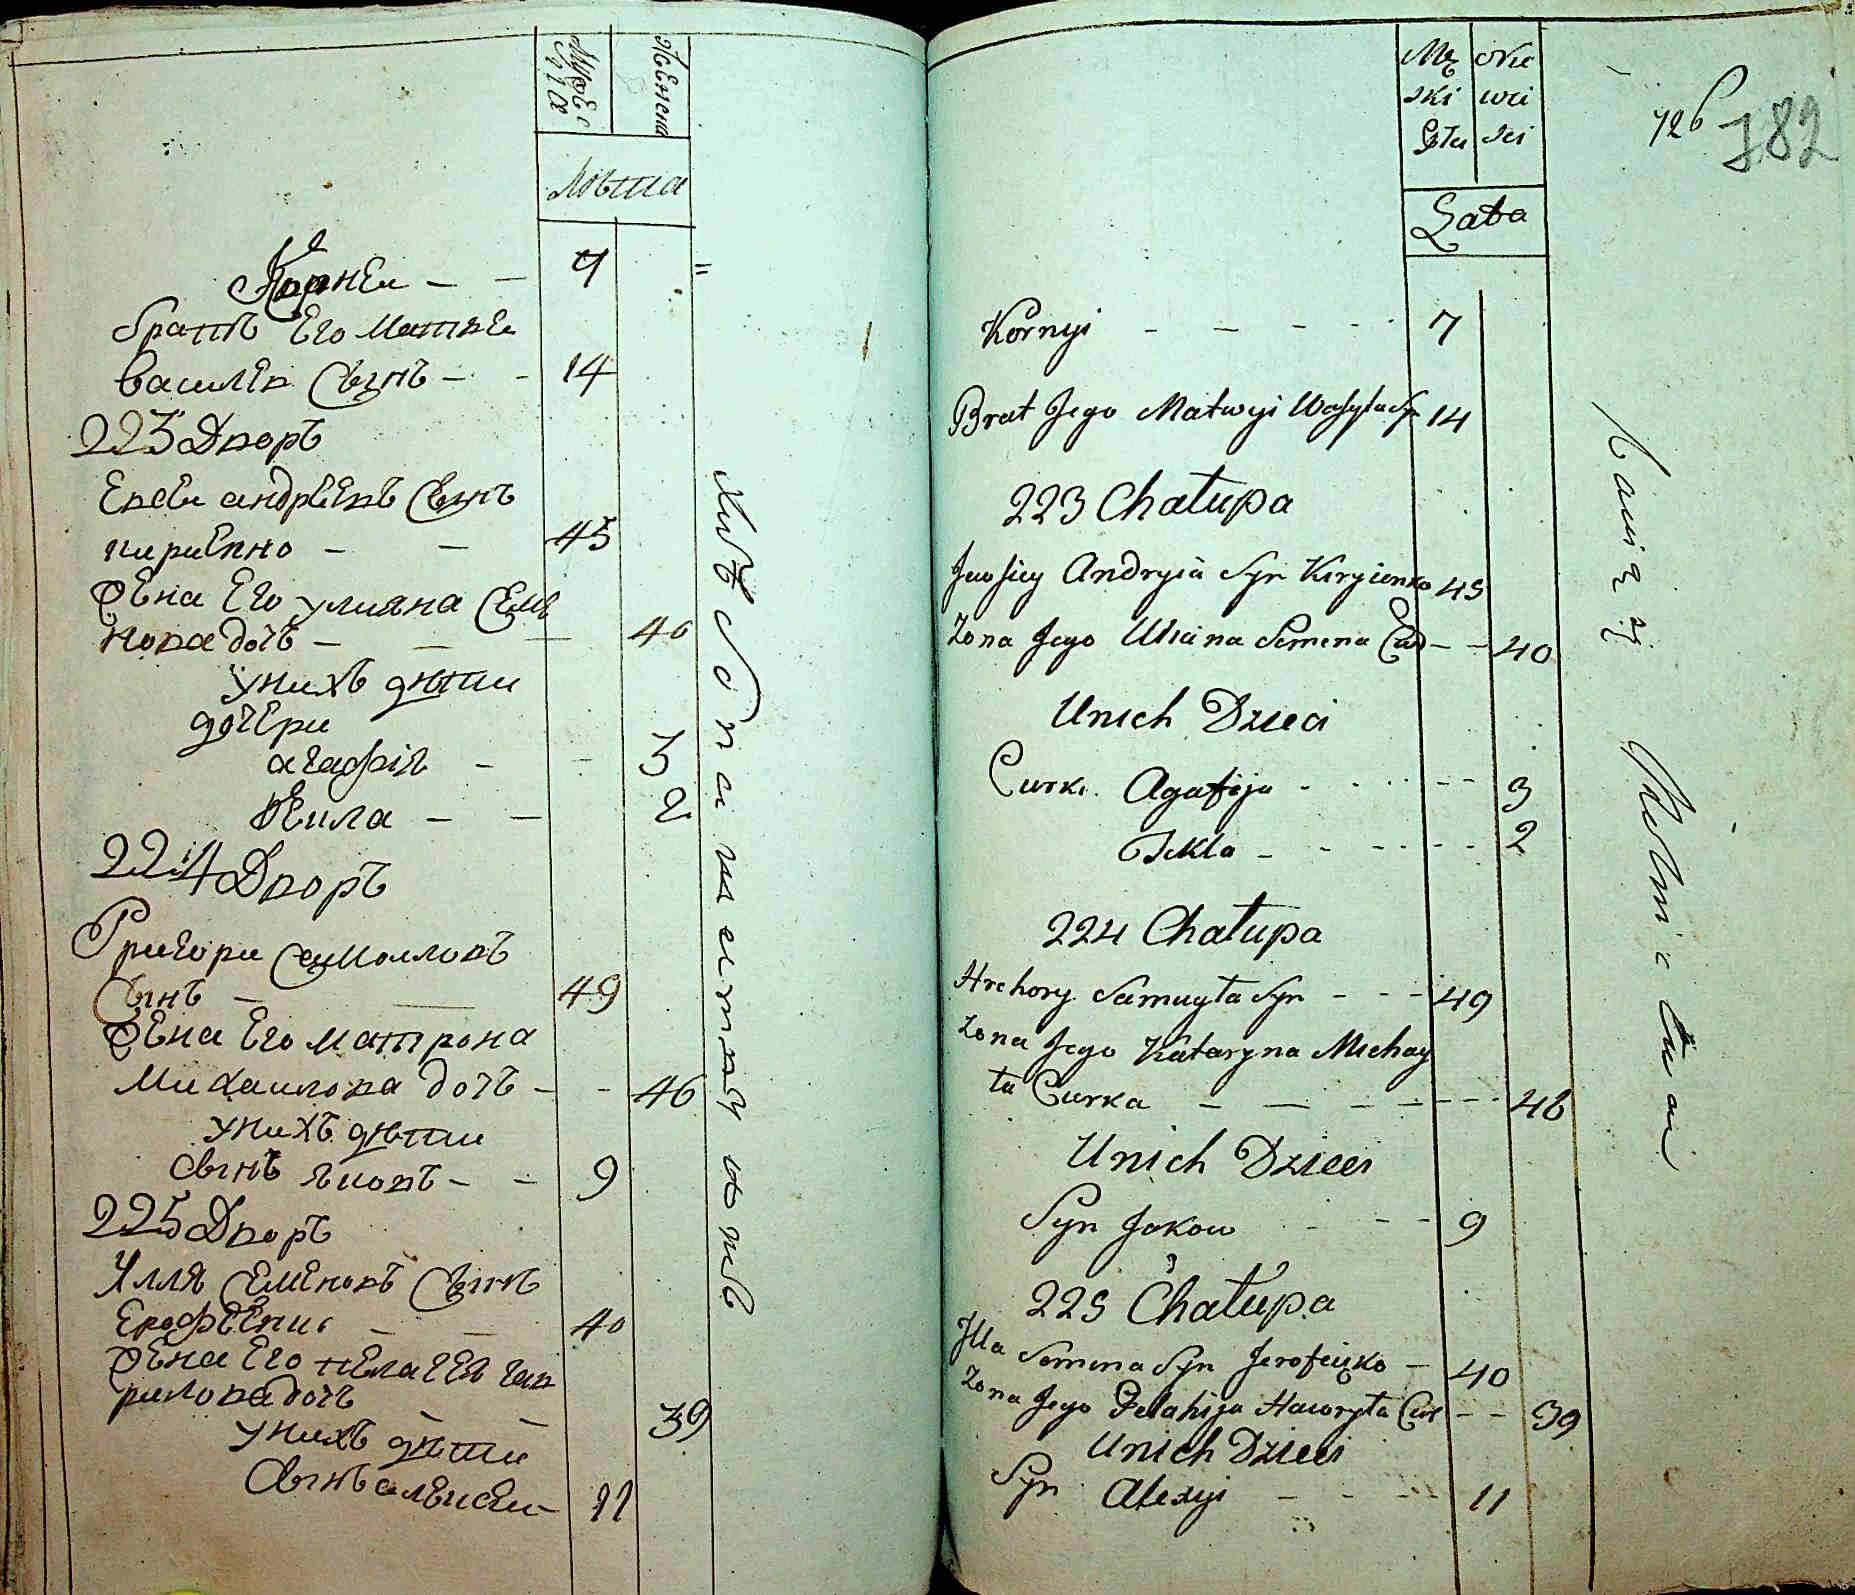 Мужеска
Женска
Лѣта
Корнеи — — 7
братъ Его Матвеи
василев Сынъ — — 14
223 Дворъ
Евсеи андрѣевъ Сынъ
кириенко — — 45
Жена Его улияна Семе
нова дочь — — 40
у нихъ дѣти
дочери
агафiя — — 3
Фекла — — 2
224 Дворъ
Григори Самоиловъ
Сынъ — — 49
Жена Его матрона
Михаилова дочь — — 46
у нихъ дѣти
Сынъ яковъ — — 9
225 Дворъ
Илля Семеновъ Сынъ
Ерофѣенко — — 40
Жена Его пелагея гав
рилова дочь — — 39
у нихъ дѣти
Сынъ алексеи — 11
Męzki Płci
Niewieści
Lata
726
782
Kornyi — — — 7
Brat Jego Matwyi Wasyla Syn 14
223 Chałupa
Jewsiey Andryia Syn Kiryienko 45
Zona Jego Uliana Semena Cur — — 40
Unich Dzieci
Curki Agafija — — 3
Tekla — — 2
224 Chałupa
Hrehory Samuyła Syn — — 49
Zona Jego Kataryna Michay
ła Curka — — — 46
Unich Dzieci
Syn Jakow — — 9
225 Chałupa
Illa Semena Syn Jerofeięko — 40
Zona Jego Pelahija Hawryła Cur — — 39
Unich Dzieci
Syn Alexyi — — — 11